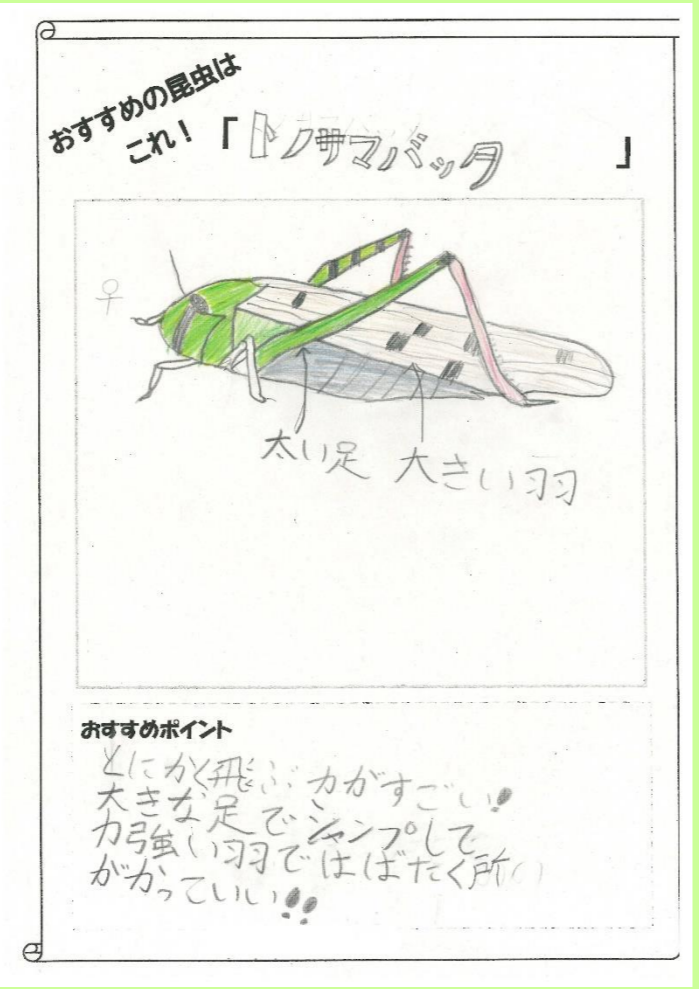 おすすめの昆虫は
これ!「トノサマバッタ」
♀
太い足
大きい羽
おすすめポイント
とにかく飛ぶ力がすごい!
大きな足でジャンプして
力強い羽ではばたく所
がかっていい!!